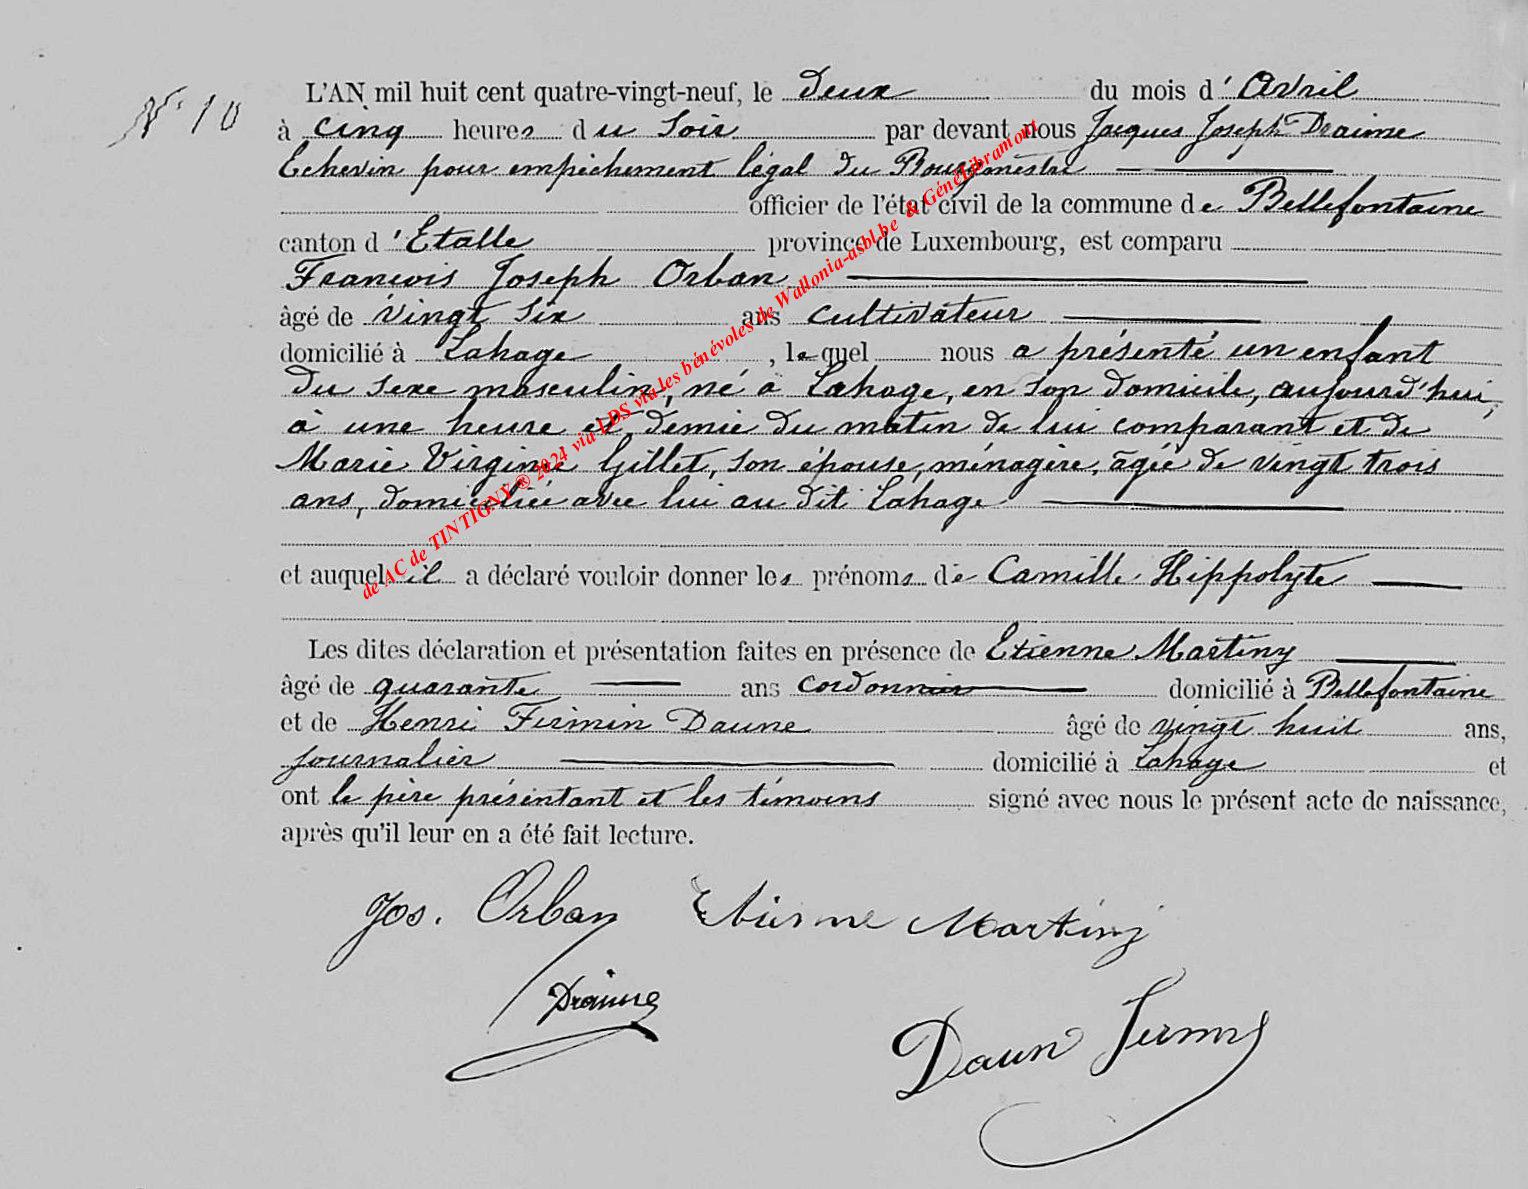 N° 10
L'AN mil huit cent quatre-vingt-neuf, le deux du mois d'Avril
à cinq heures du soir par devant nous Jacques Joseph Draime
Echevin pour empêchement légal du Bourgmestre
officier de l'état civil de la commune de Bellefontaine
canton d'Etalle province de Luxembourg, est comparu
François Joseph Orban
âgé de vingt six ans cultivateur
domicilié à Lahage, lequel nous a présenté un enfant
du sexe masculin, né à Lahage, en son domicile, aujourd'hui,
à une heure et demie du matin de lui comparant et de
Marie Virginie Gillet, son épouse, ménagère, âgée de vingt trois
ans, domiciliée avec lui au dit Lahage
et auquel il a déclaré vouloir donner les prénoms de Camille Hippolyte
Les dites déclaration et présentation faites en présence de Etienne Martiny
âgé de quarante ans cordonnier domicilié à Bellefontaine
et de Henri Firmin Daune âgé de vingt huit ans,
journalier domicilié à Lahage et
ont le père présentant et les témoins signé avec nous le présent acte de naissance,
après qu'il leur en a été fait lecture.
Jos. Orban Etienne Martiny
Draime
Daun Firmin
de AC de TINTIGNY ® 2024 via LDS via les bénévoles de Wallonia-asbl.be & GénéLibramont